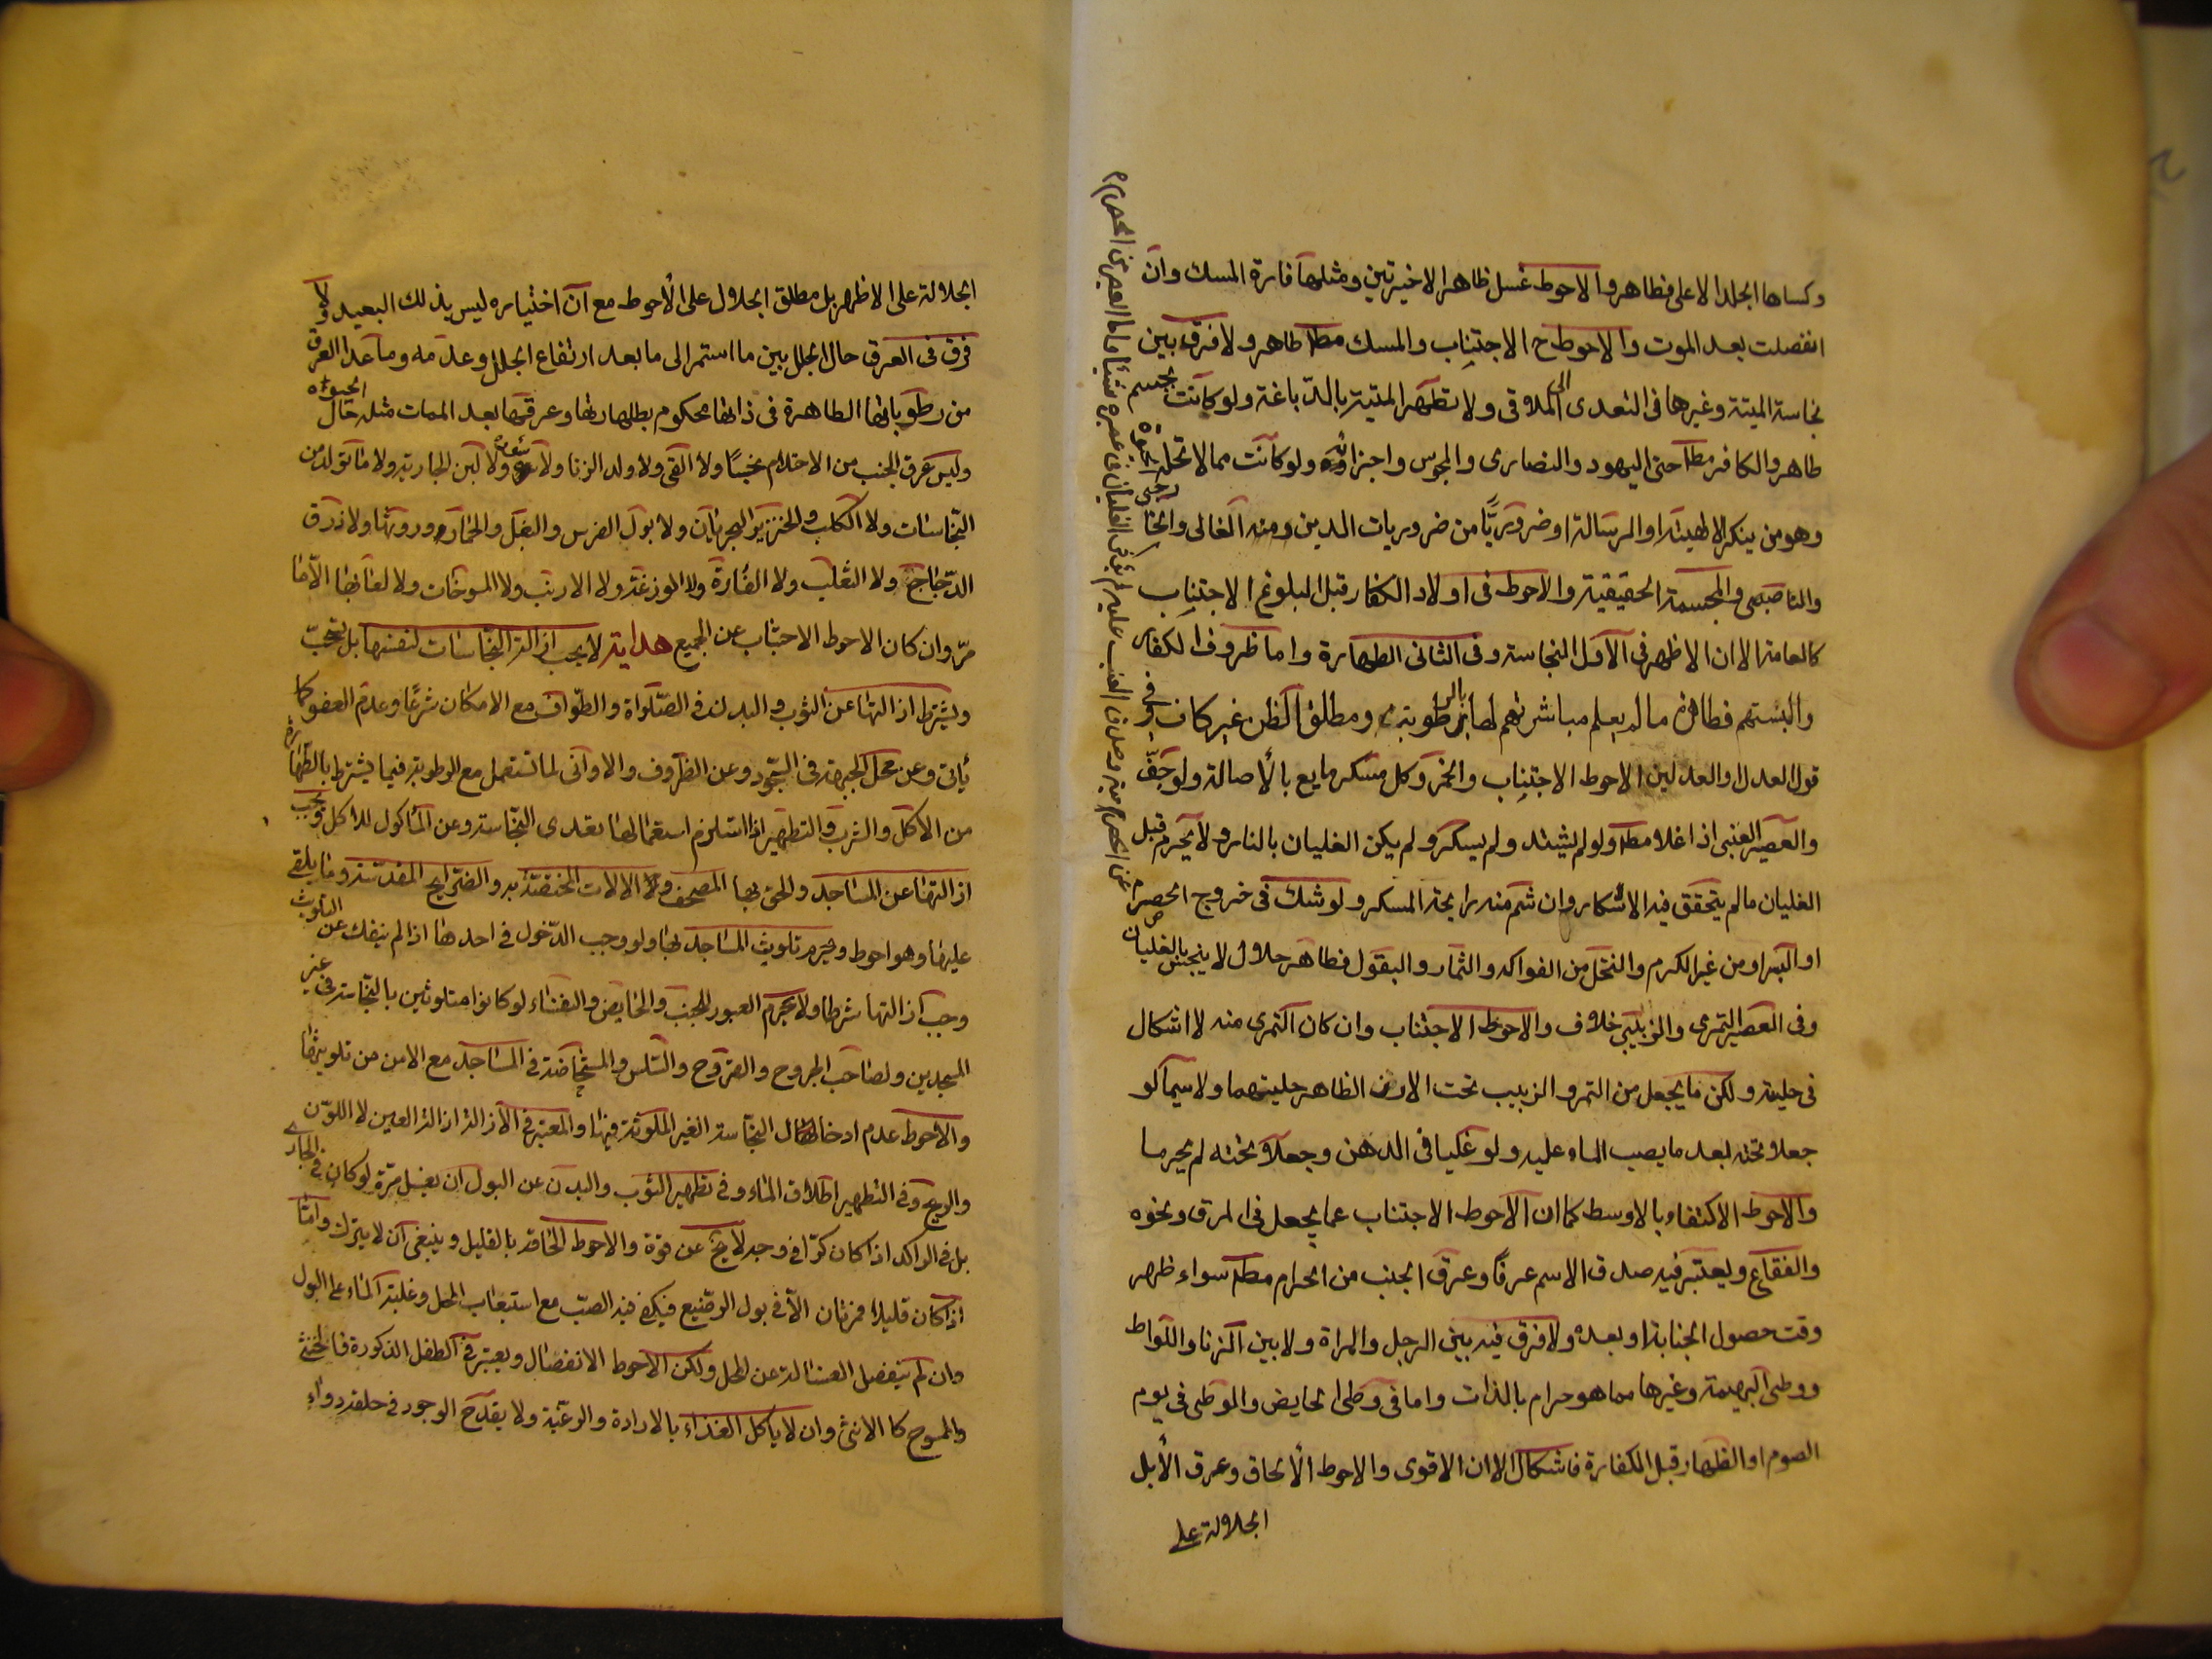 وكساها الجلد الاعلى فطاهر والاحوط غسل ظاهر الاخيرتين ومثلها فارة المسك وان
انفصلت بعد الموت والاحوط ح الاجتناب والمسك مطا طاهر ولا فرق بين
نجاسة الميتة وغيرها فى التعدى الى الملاقى ولا تطهر الميتة بالدباغة ولو كانت بجسم
طاهر والكافر مطا حتى اليهود والنصارى والمجوس واجزائه ولو كانت مما لا تحله الحيوة
وهو من ينكر الالهية او الرسالة او ضروريا من ضروريات الدين ومنه الغالى والخارجى
والناصبى والمجسمة الحقيقية والاحوط فى اولاد الكفار قبل البلوغ الاجتناب
كالعامة الا ان الاظهر فى الاول النجاسة وفى الثانى الطهارة واما ظروف الكفار
والبستهم فطاهرة ما لم يعلم مباشرتهم لها بالرطوبة ومطلق الظن غير كاف وفى
قول العدل او العدلين الاحوط الاجتناب والخمر وكل مسكر مايع بالأصالة ولو جف
والعصير العنبى اذا غلا مطا ولو لم يشتد ولم يسكر ولم يكن الغليان بالنار ولا يحرم قبل
الغليان ما لم يتحقق فيه الاسكار وان شم منه رايحة المسكر ولو شك فى خروج الحصرم
او البسر او من غير الكرم والنخل من الفواكه والثمار والبقول فطاهر حلال لا ينجس بالغليان
وفى العصير التمرى والزبيبى خلاف والاحوط الاجتناب وان كان التمرى منه لا اشكال
فى حليته ولكن ما يجعل من التمر والزبيب تحت الارز الظاهر حليتهما ولا سيما لو
جعلا تحته بعد ما يصب الماء عليه ولو غليا فى الدهن وجعلا تحته لم يحرما
والاحوط الاكتفاء بالاوسط كما ان الاحوط الاجتناب عما يجعل فى المرق ونحوه
والفقاع ويعتبر فيه صدق الاسم عرفا وعرق الجنب من الحرام مطا سواء ظهر
وقت حصول الجنابة او بعده ولا فرق فيه بين الرجل والمراة ولا بين الزنا واللواط
ووطى البهيمة وغيرها مما هو حرام بالذات واما فى وطى الحايض والوطى فى يوم
الصوم او الظهار قبل الكفارة فاشكال الا ان الاقوى والاحوط الألحاق وعرق الأبل
الجلالة على
الجلالة على الاظهر بل مطلق الجلال على الأحوط مع ان اختياره ليس بذلك البعيد ولا
فرق فى العرق حال الجلل بين ما استمر الى ما بعد ارتفاع الجلل وعدمه وما عدا العرق
من رطوباتها الطاهرة فى ذاتها محكوم بطهارتها وعرقها بعد الممات مثله حال الحيوة
وليس عرق الجنب من الاحتلام نجسا ولا القى ولا ولد الزنا ولا ولا لبن الجارية ولا ما تولد من
النجاسات ولا الكلب والخنزير البحريان ولا بول الفرس والبغل والحمار وروثها ولا ذرق
الدجاج ولا الثعلب ولا الفارة ولا الوزغة ولا الارنب ولا المسوخات ولا لعابها الا ما
مر وان كان الاحوط الاجتناب عن الجميع هداية لا يجب ازالة النجاسات لنفسها بل تستحب
ويشترط ازالتها عن الثوب والبدن فى الصلواة والطواف مع الامكان شرعا وعدم العفو كما
يأتى وعن محل الجبهة فى السجود وعن الظروف والاوانى لما تستعمل مع الرطوبة فيما يشترط بالطهارة
من الاكل والشرب والتطهير اذا استلزم استعمالها تعدى النجاسة وعن المأكول للاكل ويجب
ازالتها عن المساجد والحق بها المصحف والالات المختصة به والضرايح المقدسة وما يلقى
عليها وهو احوط ويحرم تلويث المساجد بها ولو وجب الدخول فى احدها اذا لم ينفك عن التلويث
وجب ازالتها شرطا ولا يحرم العبور للجنب والحايض والنفساء لو كانوا متلوثين بالنجاسة فى غير
المسجدين ولصاحب الجروح والقروح والسلس والمستحاضة فى المساجد مع الامن من تلويثها
والاحوط عدم ادخال النجاسة الغير الملوثة فيها والمعتبر فى الازالة ازالة العين لا اللون
والريح وفى التطهير اطلاق الماء وفى تطهير الثوب والبدن عن البول ان يغسل مرة لو كان فى الجارى
بل فى الراكد اذا كان كرا فى وجه لا يخ عن قوة والاحوط الحاقه بالقليل وينبغى ان لا يترك واما
اذا كان قليلا فمرتان الا فى بول الرضيع فيكفى فيه الصب مع استيعاب المحل وغلبة الماء على البول
وان لم ينفصل الغسالة عن المحل ولكن الاحوط الانفصال ويعتبر فى الطفل الذكورة فالخنثى
والممسوح كالانثى وان لا يأكل الغذاء بالارادة والرغبة ولا يقدح الوجور فى حلقه دواء